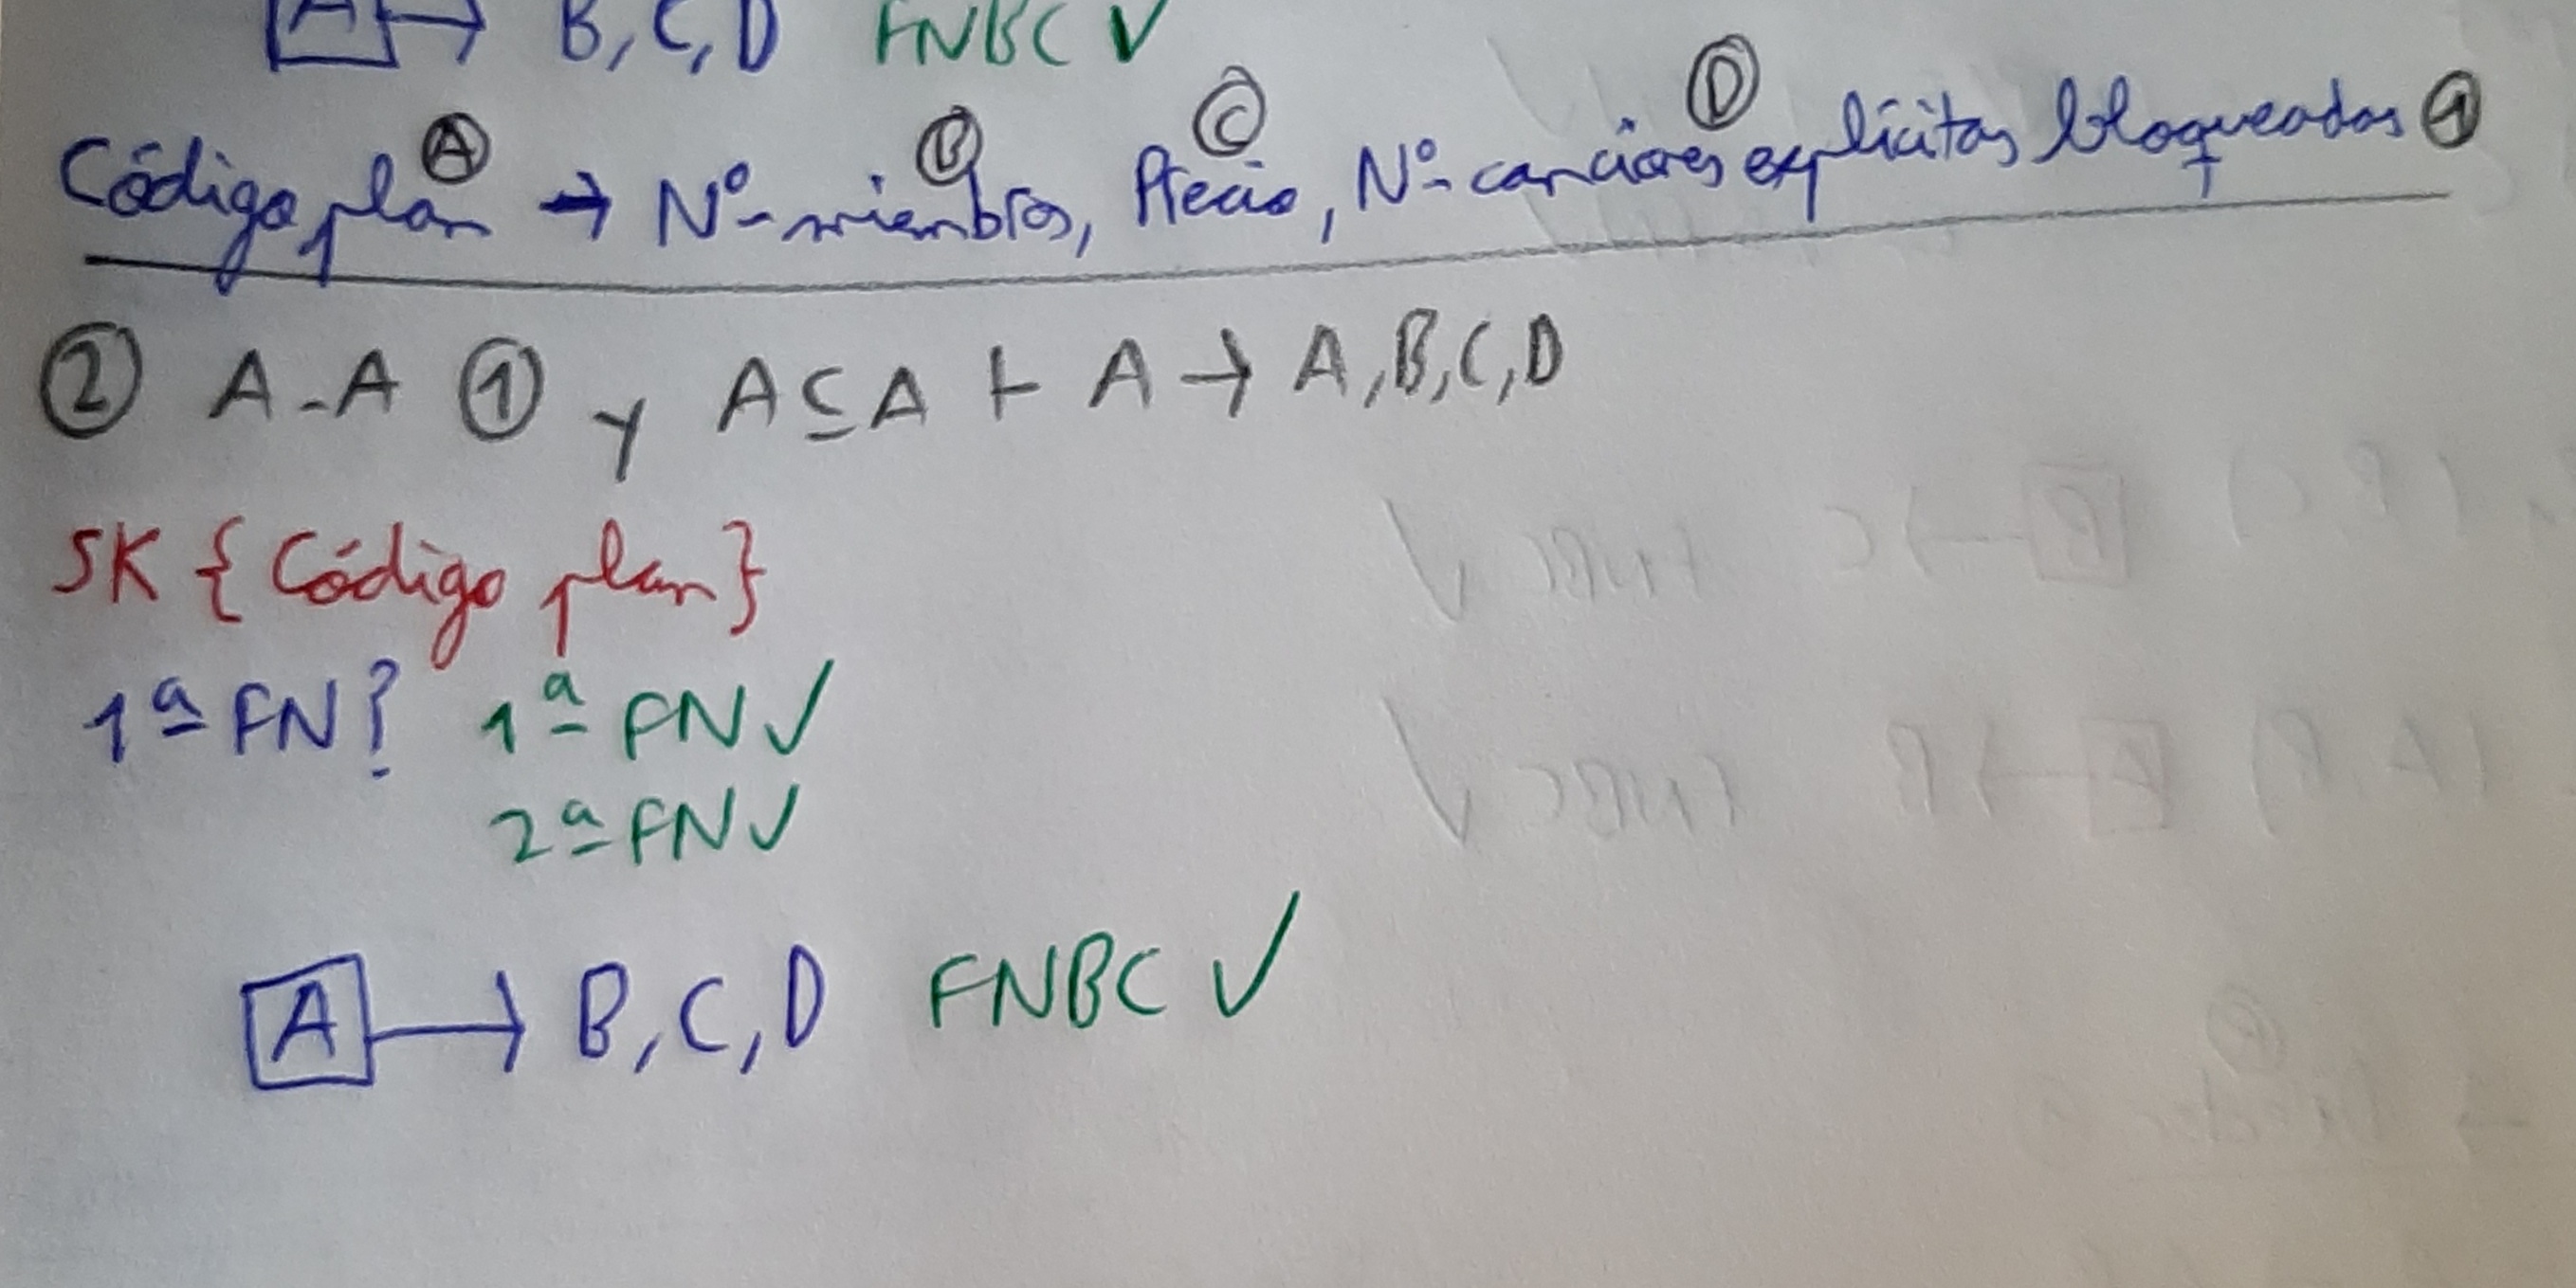 A → B, C, D FNBC ✓
Código plan Ⓐ → Nº miembros Ⓑ, Precio Ⓒ, Nº canciones explícitas bloqueadas Ⓓ ①
② A-A ① y A⊆A ⊢ A → A,B,C,D
SK {Código plan}
1ª FN? 1ª FN ✓
2ª FN ✓
A → B, C, D FNBC ✓